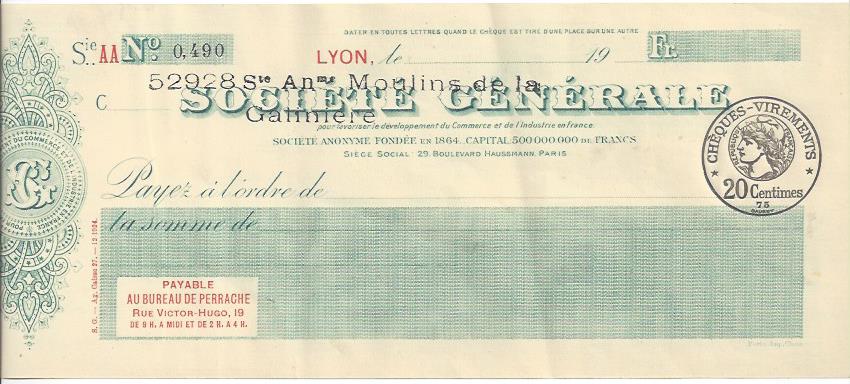 DATER EN TOUTES LETTRES QUAND LE CHÈQUE EST TIRÉ D'UNE PLACE SUR UNE AUTRE
Sie AA No. 0,490
LYON, le 19 Fr.
52928 Ste Anme Moulins de la
Galinière
C
SOCIÉTÉ GÉNÉRALE
pour favoriser le développement du Commerce et de l'Industrie en France
SOCIÉTÉ ANONYME FONDÉE EN 1864. CAPITAL 500 000 000 DE FRANCS
SIÈGE SOCIAL: 29, BOULEVARD HAUSSMANN, PARIS
CHÈQUES-VIREMENTS
RÉPUBLIQUE FRANÇAISE
20 Centimes
75
Payez à l'ordre de
la somme de
PAYABLE
AU BUREAU DE PERRACHE
RUE VICTOR-HUGO, 19
DE 9 H. A MIDI ET DE 2 H. A 4 H.
S. G. — Ag. Caisse 27. — 12 1924.